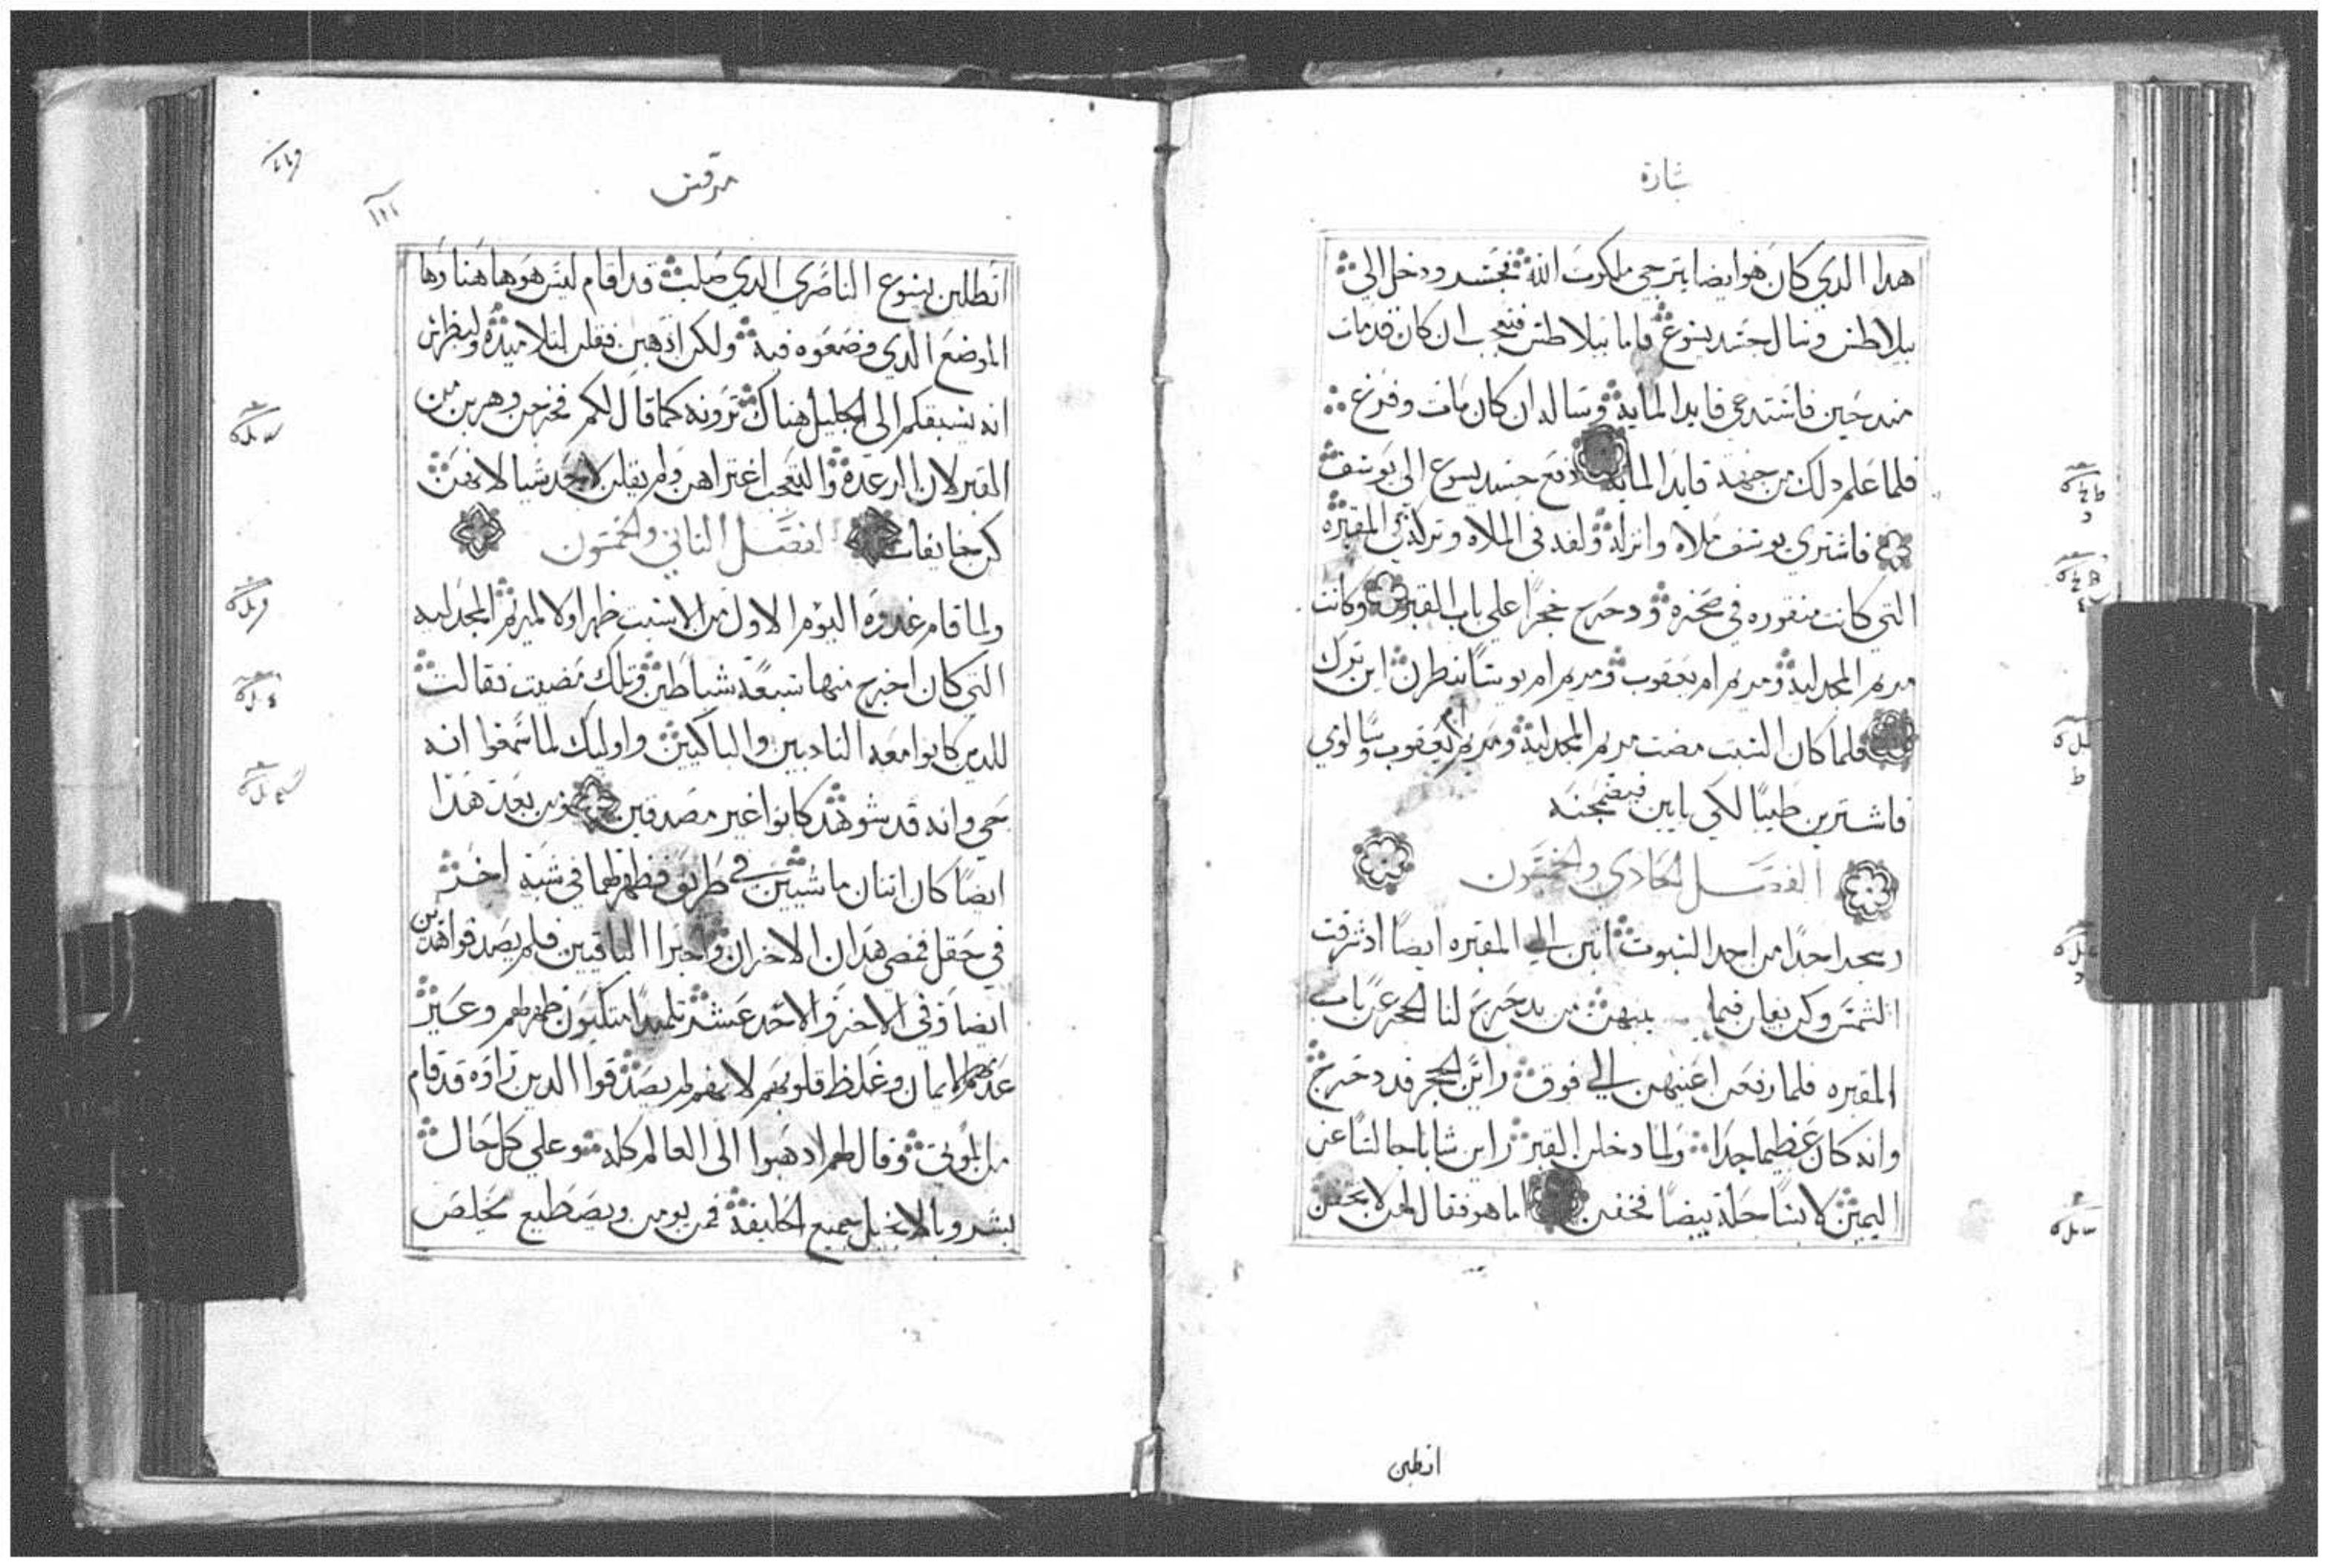 بشارة
هدا الدي كان هوايضا يترجي ملكوت الله فجسر ودخل الي
بيلاطس وسال جسد يسوع فاما بيلاطس فتعجب ان كان قد مات
مند حين فاستدعي قايد الماية وساله ان كان مات وفرغ
فلما علم دلك من جهة قايد الماية دفع جسد يسوع الي يوسف
فاشتري يوسف ملاه وانزله ولفه في الملاه وتركه في المقبره
التي كانت منقوره في صخره ودحرج حجرا علي باب القبر وكانت
مريم المجدلية ومريم ام يعقوب ومريم ام يوسا ينظرن اين ترك
فلما كان السبت مضت مريم المجدلية ومريم ام يعقوب وسالومي
فاشترين طيبا لكي ياتين فيضمخنه
الفصل الحادي والخمسون
وسحرا جدا من احد السبوت اتين الي المقبره ايضا اد شرقت
الشمس وكن يقلن فيما بينهن من يدحرج لنا الحجر عن باب
المقبره فلما رفعن اعينهن الي فوق راين الحجر قد دحرج
وانه كان عظيما جدا ولما دخلن القبر راين شابا جالسا عن
اليمين لابسا حلة بيضا فخفن اما هو فقال لهن لا تخفن
اتطلبن
مرقس
اتطلبن يسوع الناصري الدي صلب قد قام ليس هو هاهنا وها
الموضع الدي وضعوه فيه ولكن ادهبن فقلن لتلاميده ولبطرس
انه يسبقكم الي الجليل هناك ترونه كما قال لكم فخرجن وهربن من
القبر لان الرعدة والتعجب اعتراهن ولم يقلن لاحد شيا لانهن
كن خايفات الفصل الثاني والخمسون
ولما قام غدوة اليوم الاول من الاسبت ظهر اولا لمريم المجدلية
التي كان اخرج منها سبعة شياطين وتلك مضيت فقالت
للدين كانوا معه النادبين والباكيين واوليك لما سمعوا انه
حي وانه قد شوهد كانوا غير مصدقين ومن بعد هدا
ايضا كان اثنان ماشيين في طريق فظهر لهما في شبه اخر
في حقل فمضي هدان الاخران واخبرا الباقيين فلم يصدقوا هدين
ايضا وفي الاخر والاحد عشر تلميدا متكيون ظهر لهم وعير
عدمهم الايمان وغلظ قلوبهم لانهم لم يصدقوا الدين راوه قد قام
من الموتي وقال لهم ادهبوا الي العالم كله وعلي كل حال
بشروا بالانجيل جميع الخليقة فمن يومن ويصطبع يخلص